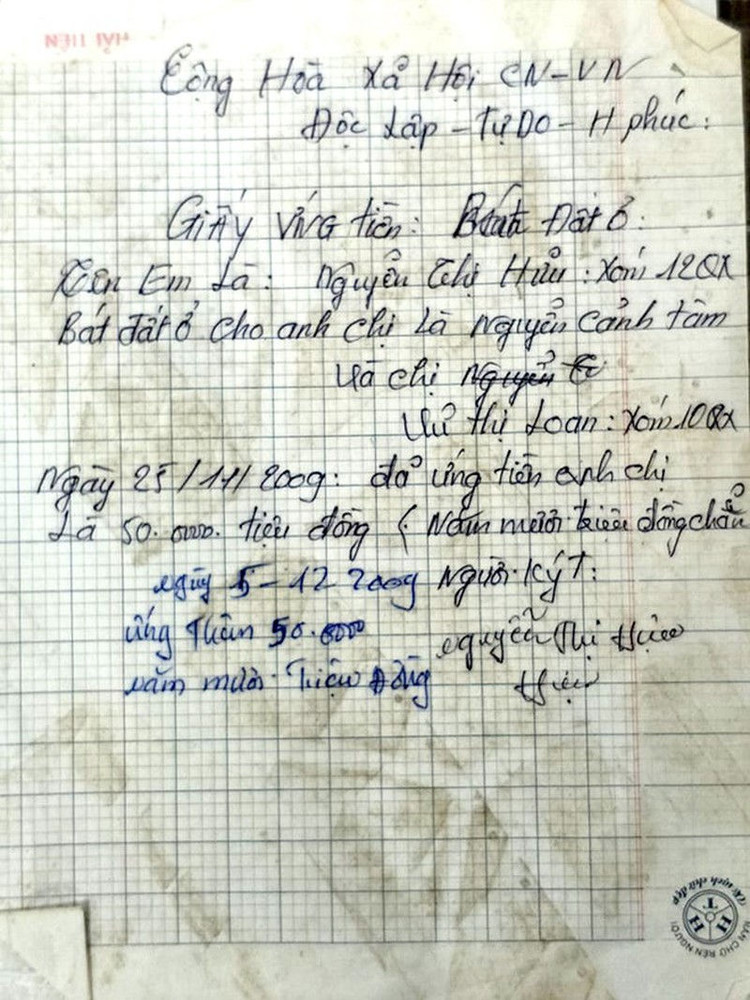 HẢI TIẾN
Cộng Hoà Xả Hội CN-VN
Độc Lập - Tự Do - H phúc:
Giấy ứng tiền: Bán Đất ở:
Tên Em Là: Nguyễn Thị Hửu: Xóm 12QX
Bát đất ở cho anh chị Là Nguyễn Cảnh tâm
Và chị
Vử thị Loan: Xóm 10Qx
Ngày 25/11/2009: đả ứng tiền anh chị
Là 50.000. tiệu đồng (Năm mươi triệu đồng chẳn
ngày 5-12 2009 Người Ký T:
ứng Thêm 50.000
nguyễn Thị Hựu
năm mươi Triệu Đồng
Hựu
Nét chữ nết người